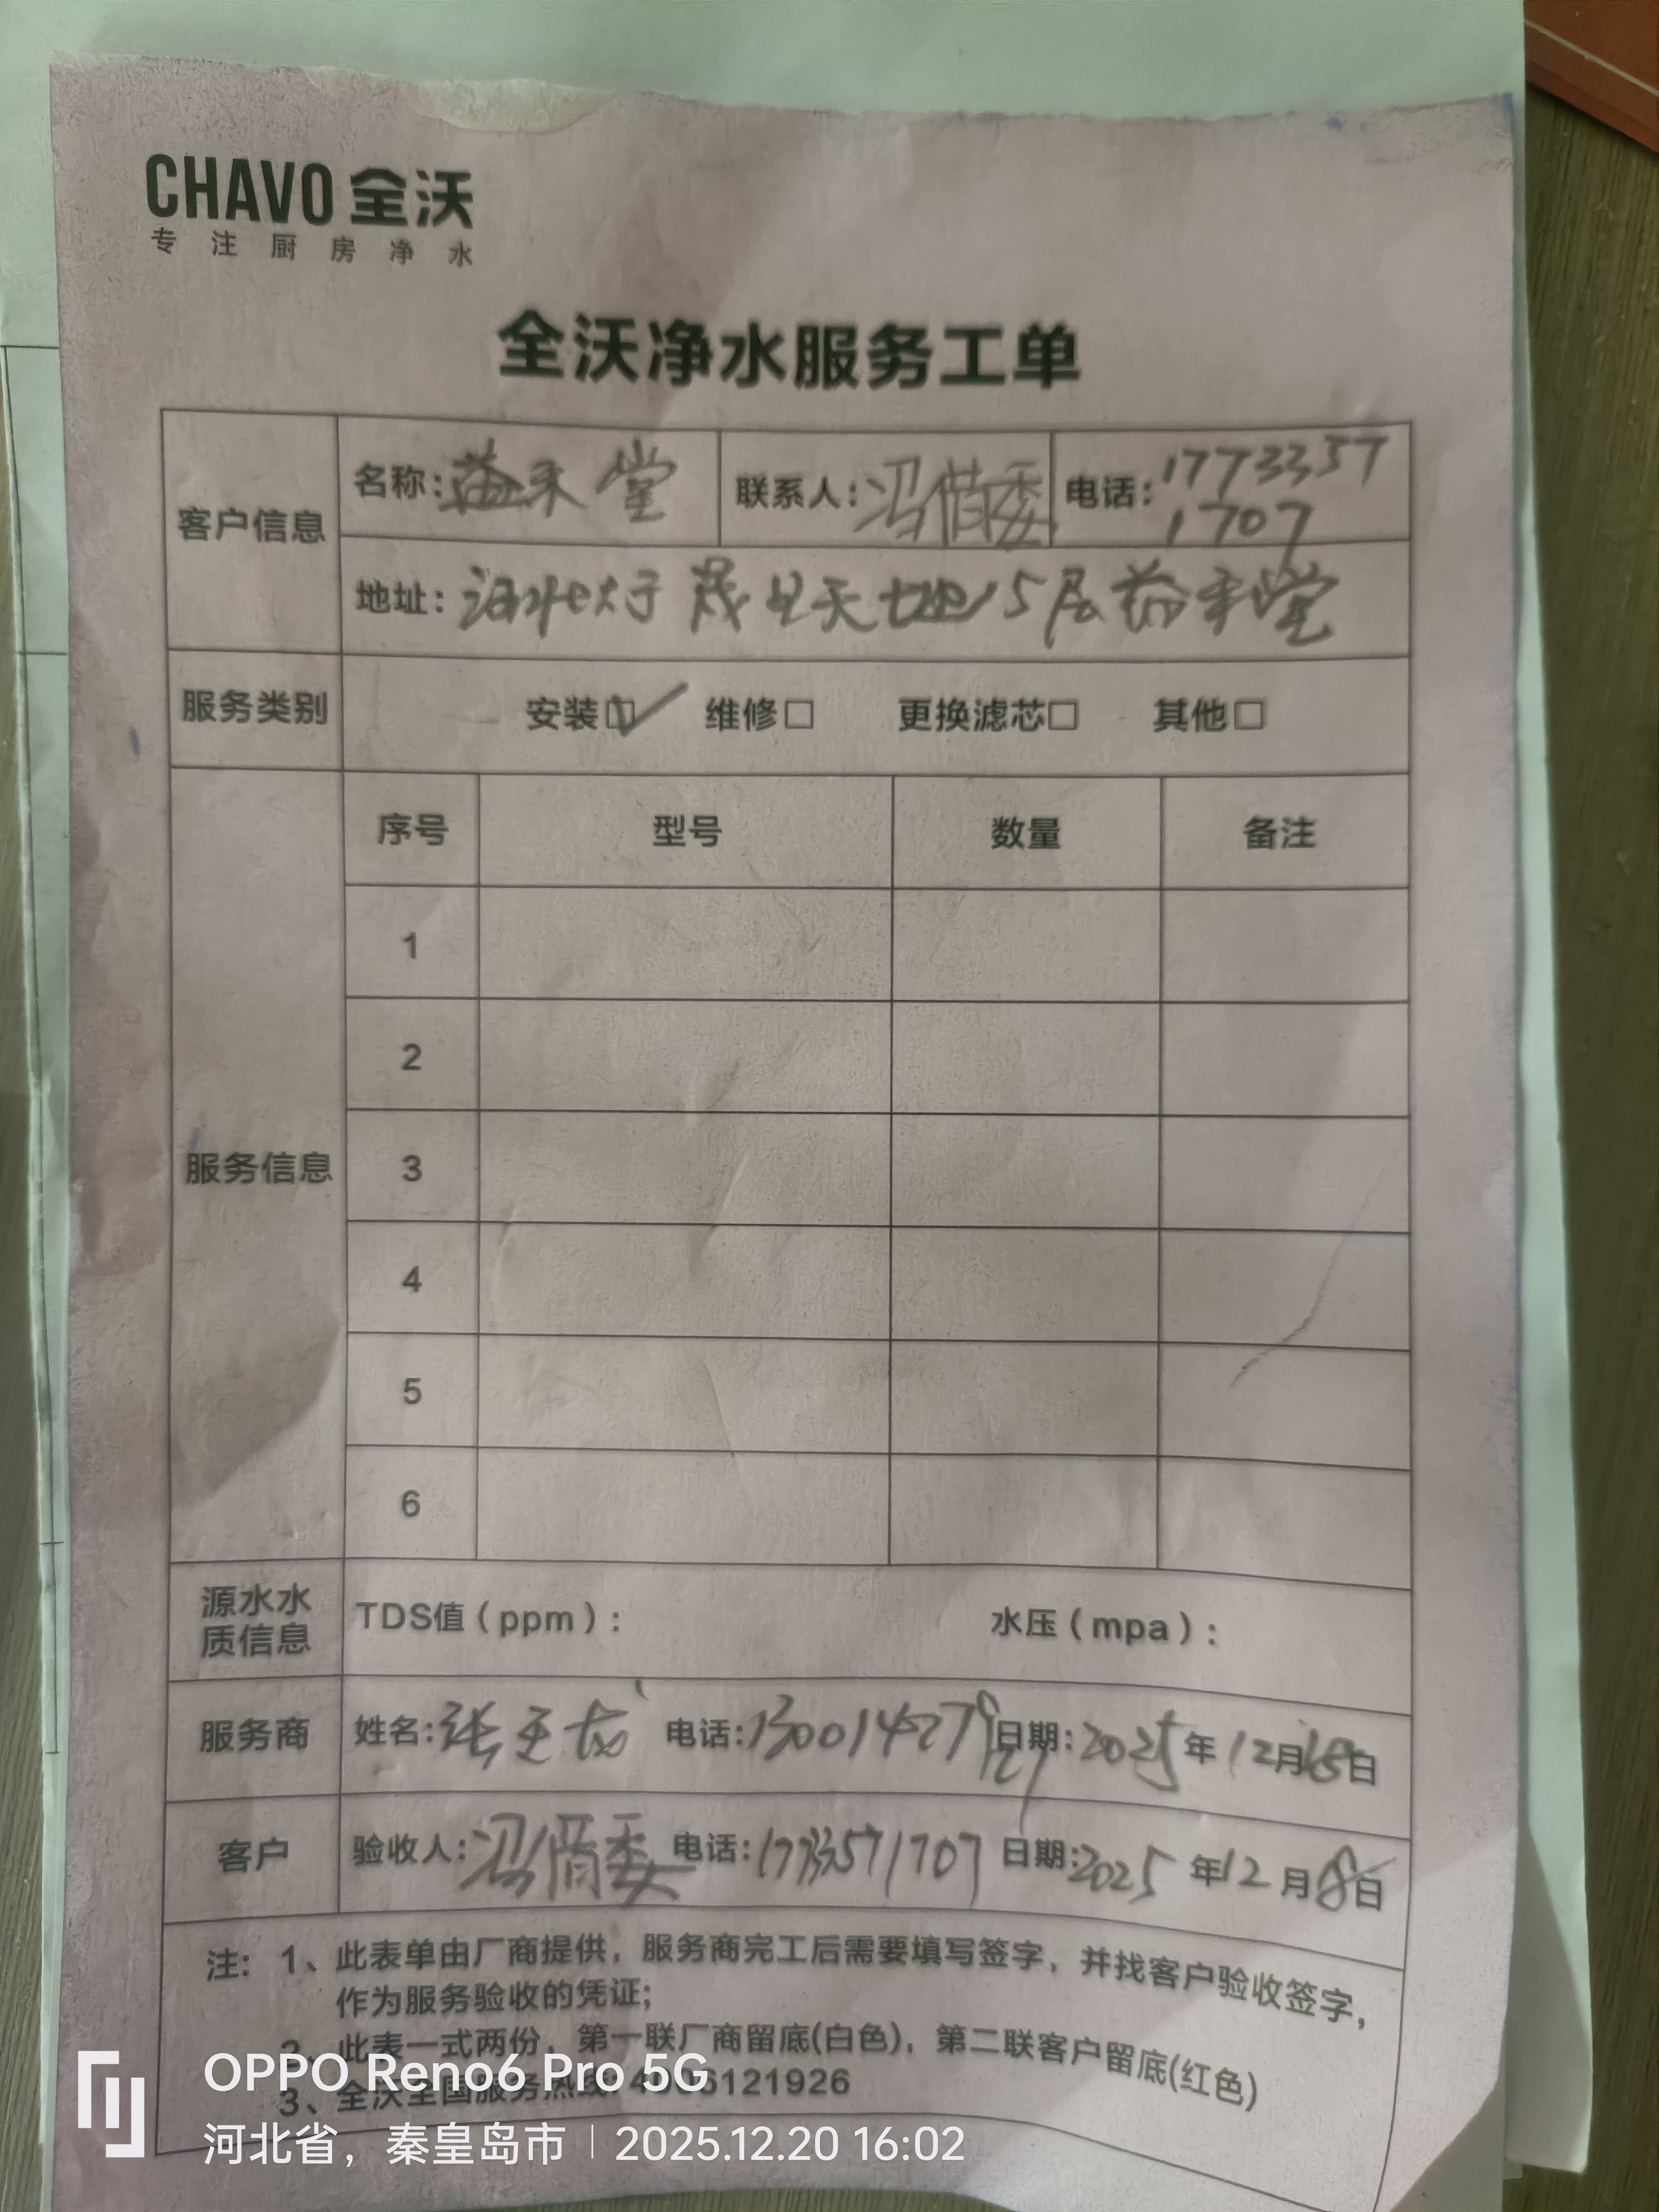 CHAVO 全沃
专注厨房净水
全沃净水服务工单
客户信息
名称: 堂 联系人: 冯 电话: 1773357
1707
地址: 天地15层益禾堂
服务类别 安装☑ 维修□ 更换滤芯□ 其他□
服务信息
序号 型号 数量 备注
1
2
3
4
5
6
源水水
质信息
TDS值(ppm): 水压(mpa):
服务商 姓名:张玉龙 电话: 日期:2025年12月日
客户 验收人:冯 电话: 日期:2025年12月8日
注: 1、此表单由厂商提供，服务商完工后需要填写签字，并找客户验收签字，
作为服务验收的凭证;
2、此表一式两份，第一联厂商留底(白色)，第二联客户留底(红色)
3、全沃全国服务热线: 4006121926
OPPO Reno6 Pro 5G
河北省，秦皇岛市 | 2025.12.20 16:02